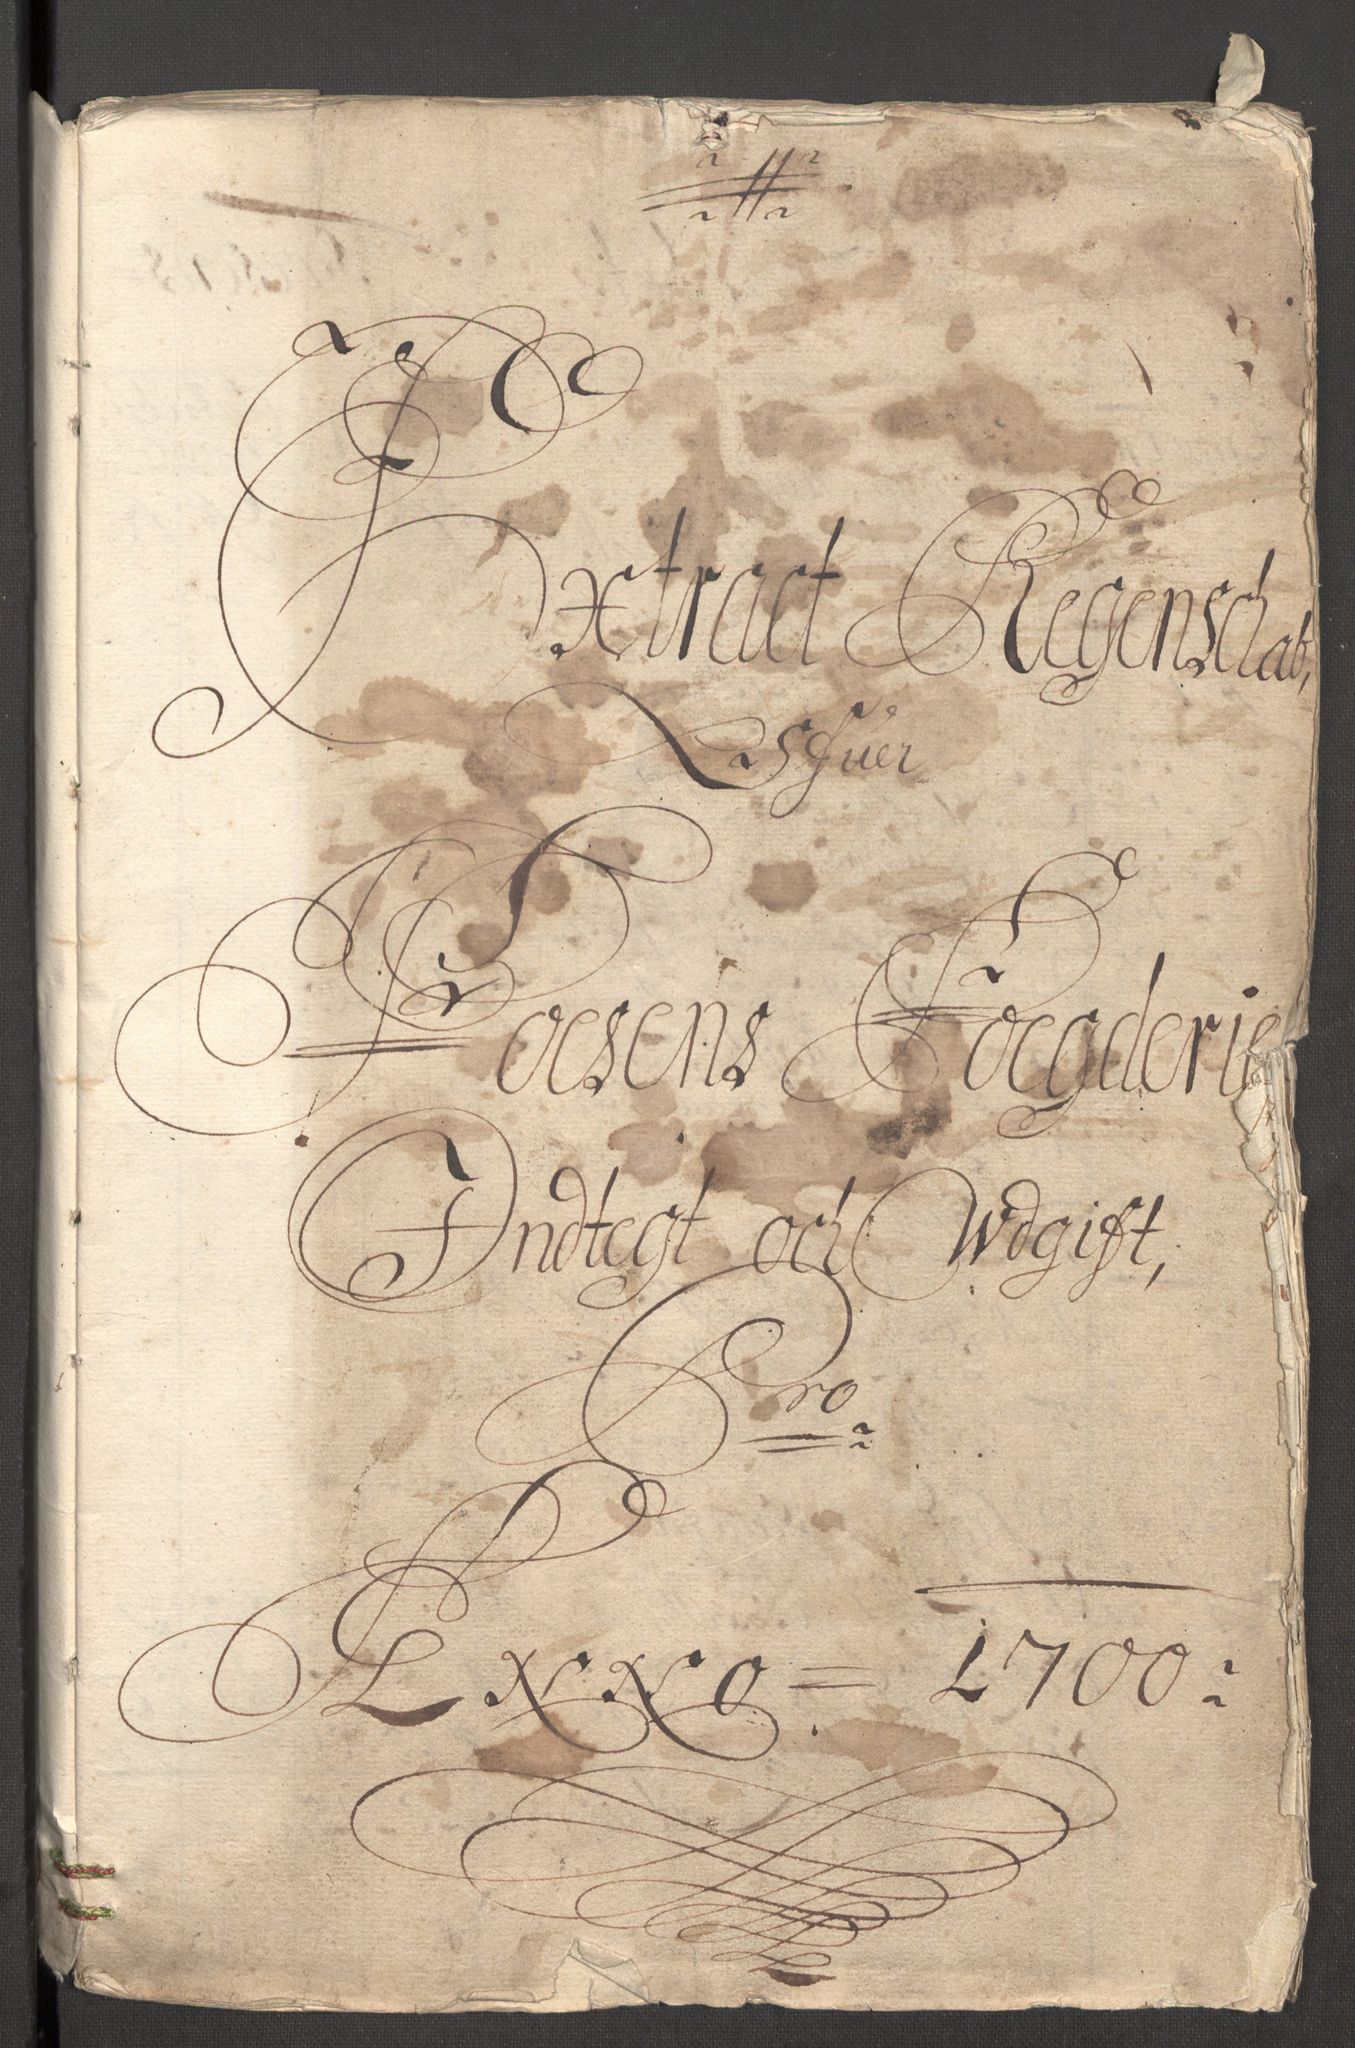 Extract Regenschab,
Ofuer
Foesens Foegderie
Indtegt och Wdgift,
Pro
Anno = 1700